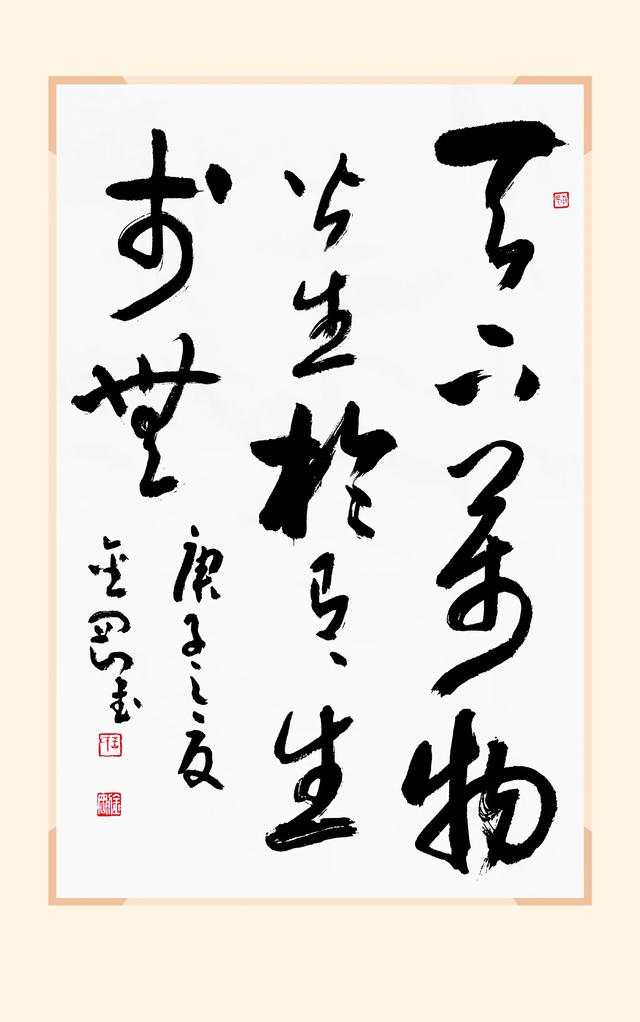 天下萬物
皆生於有々生
於無
庚子之夏
金岡書